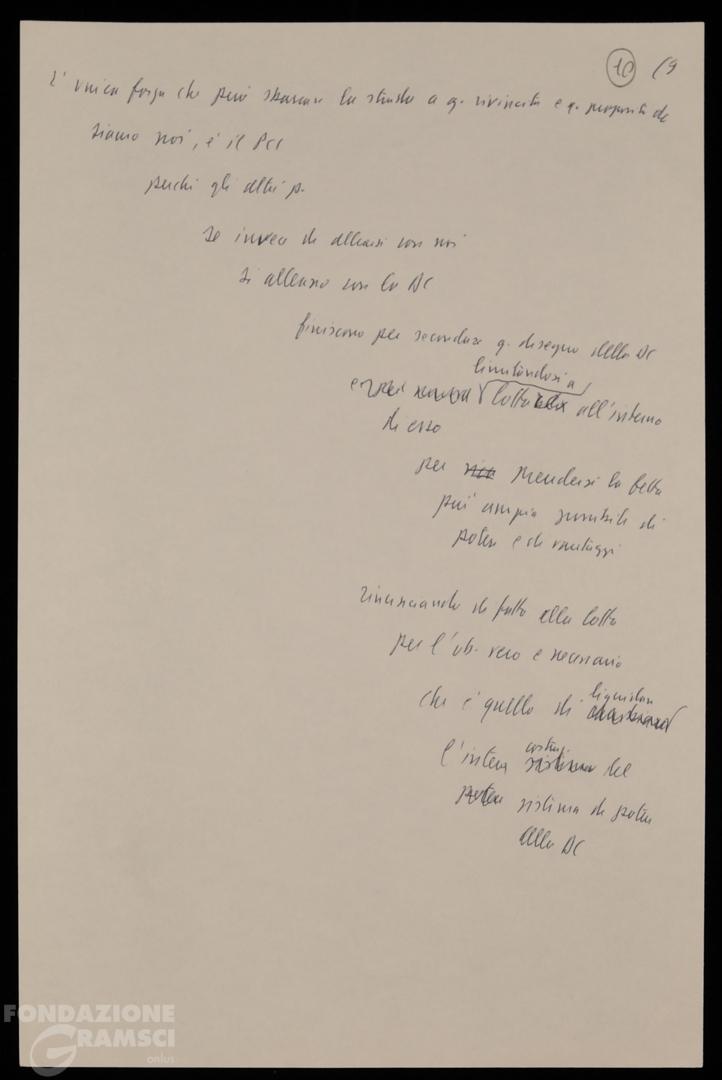 10 (9
L'unica forza che può sbarrare la strada a q. rivincita e q. proposito dc
siamo noi, è il PCI
perché gli altri p.
se invece di allearsi con noi
si alleano con la DC
finiscono per secondare q. disegno della DC
limitandosi a
lotta all'interno
di esso
per prendersi la fetta
più ampia possibile di
potere e di vantaggi
rinunciando di fatto alla lotta
per l'ob. vero e necessario
che è quello di liquidare
l'intera costruz. del
potere sistema di potere
della DC
FONDAZIONE
GRAMSCI
onlus